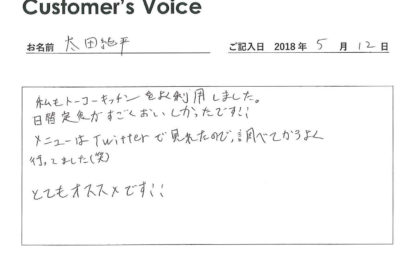 Customer's Voice
お名前 太田純平 ご記入日 2018年 5月 12日
私もトーコーキッチンをよく利用しました。
日替定食がすごくおいしかったです!!
メニューはTwitterで見れたので、調べてからよく
行ってました(笑)
とてもオススメです!!